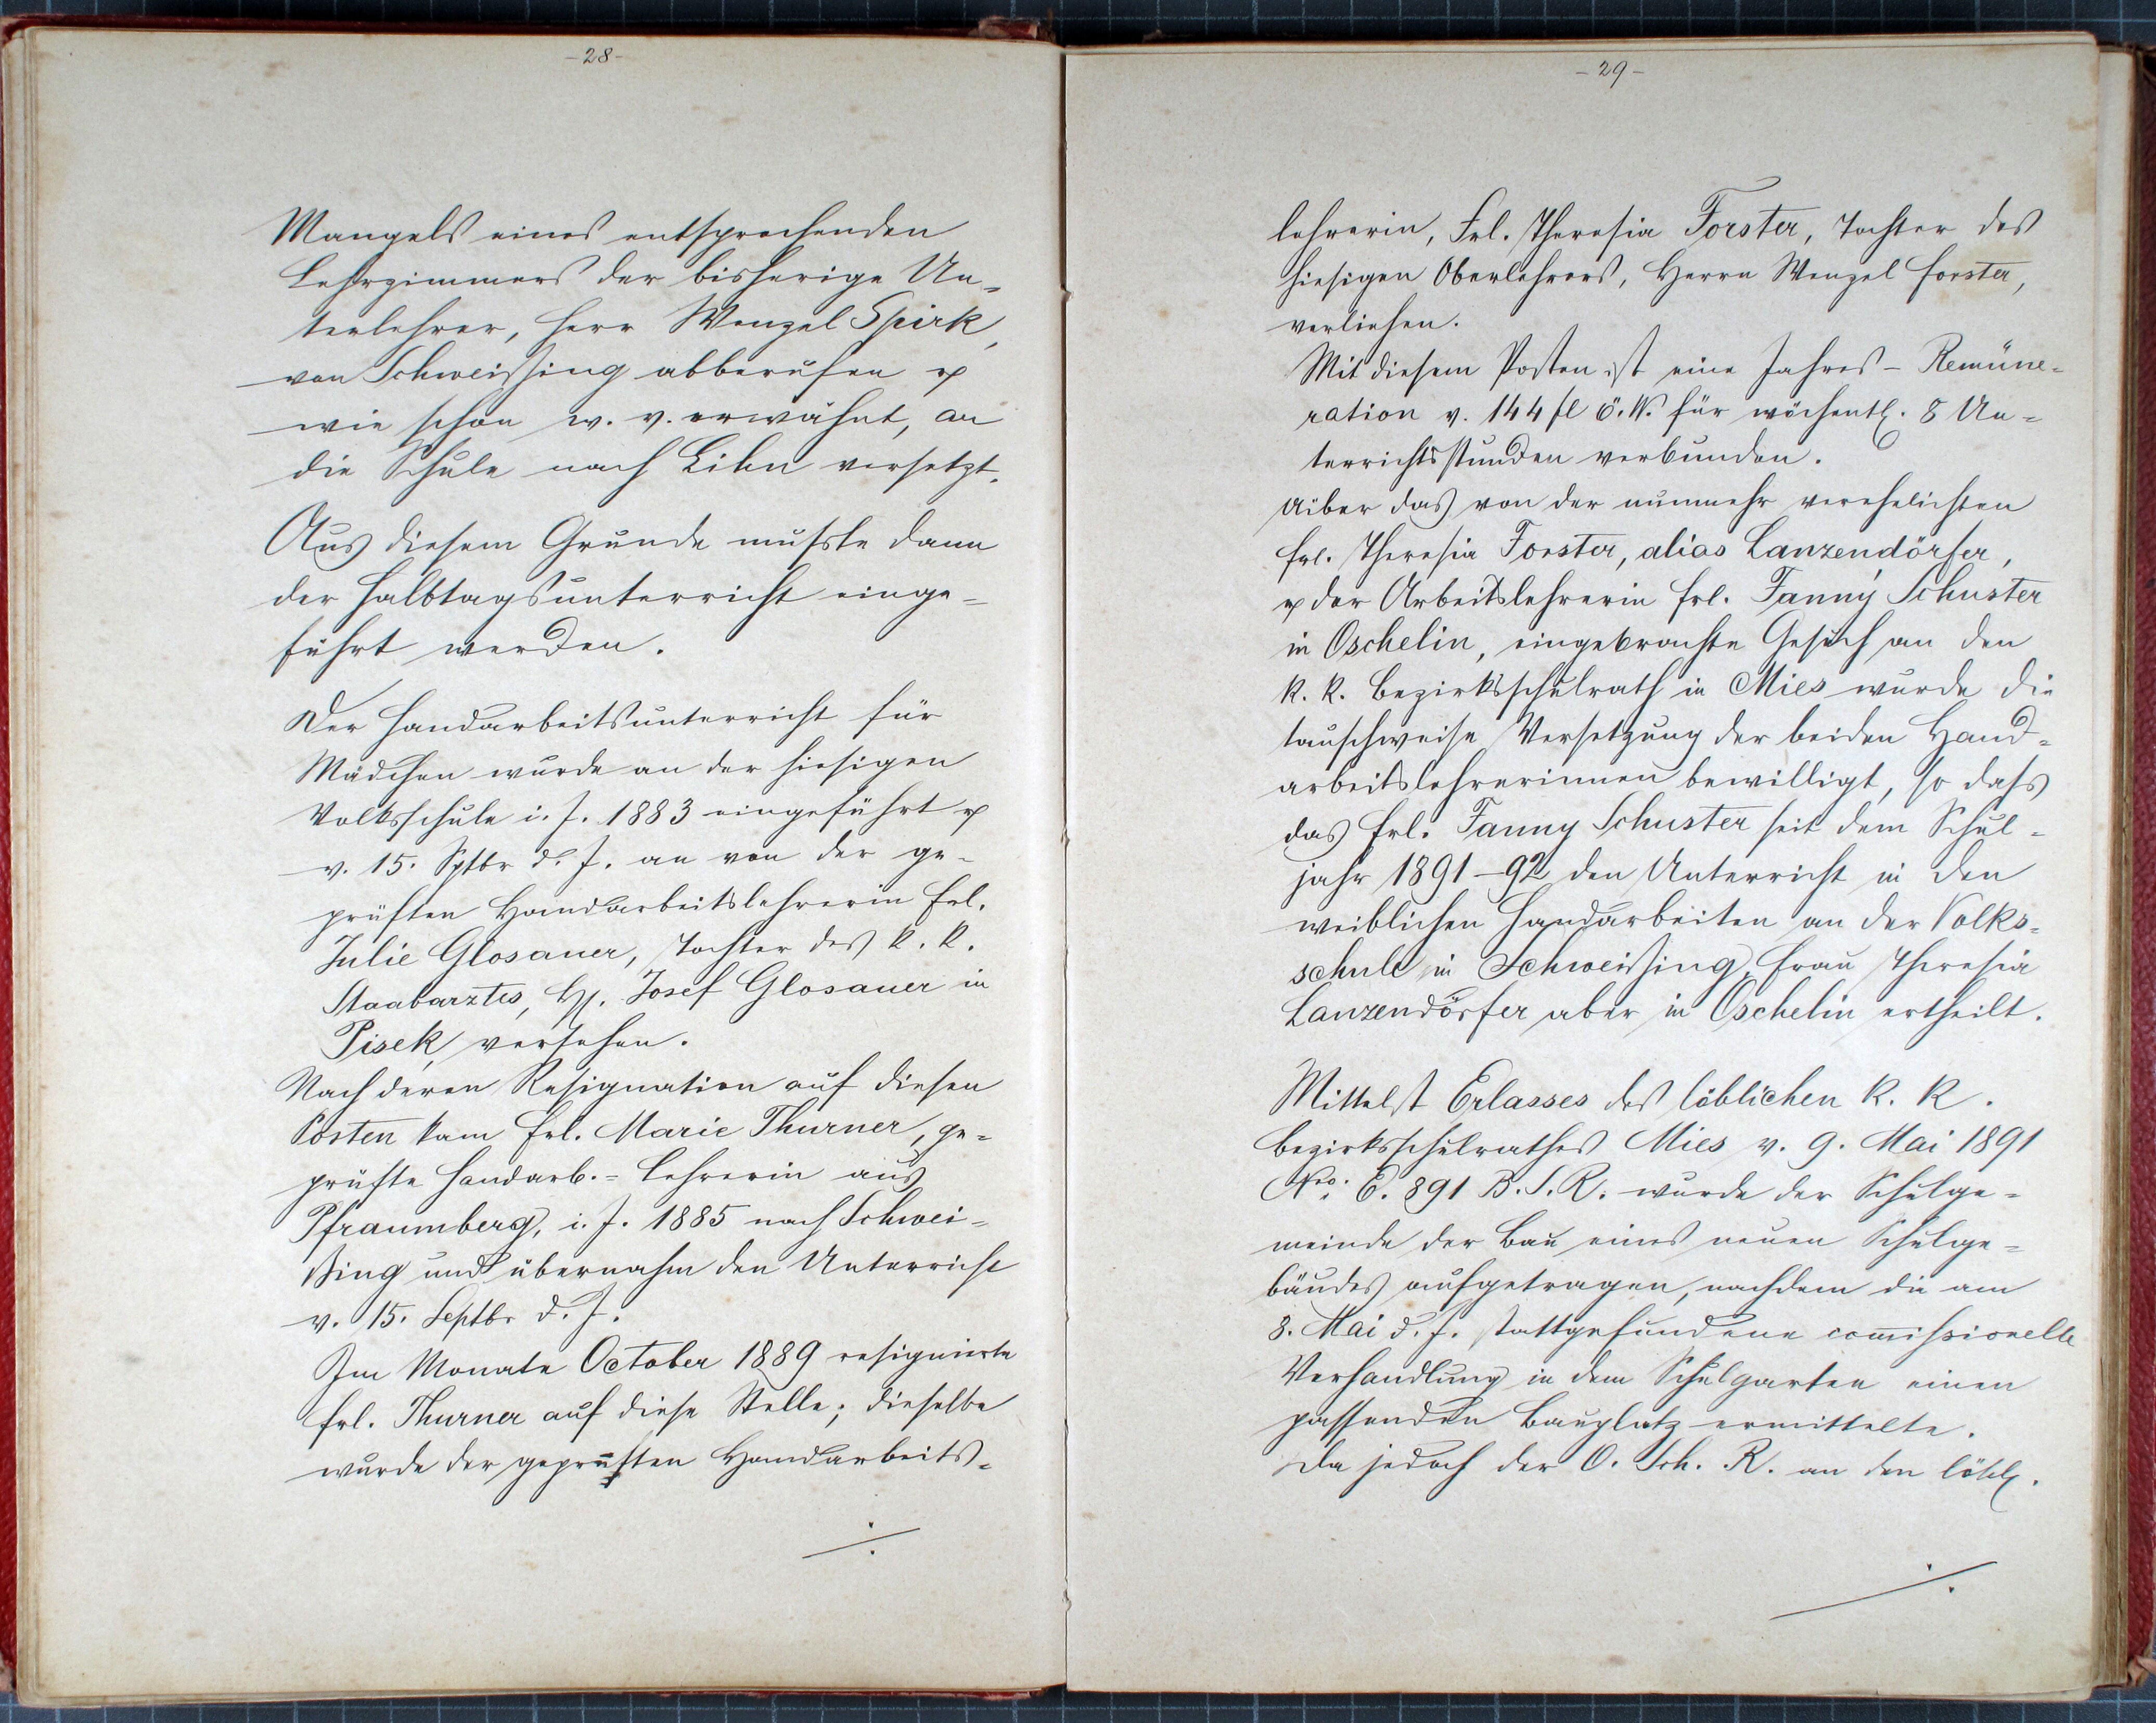 -28-
Mangels eines entsprechenden
Lehrzimmers der bisherige Un-
terlehrer, Herr Wenzel Spirk,
von Schweißing abberufen u
wie schon w. v. erwähnt, an
die Schule nach Eilen versetzt.
Aus diesem Grunde mußte dann
der Halbtagsunterricht einge-
führt werden.
Der Handarbeitsunterricht für
Mädchen wurde an der hiesigen
Volksschule i. J. 1883 eingeführt u
v. 15. Sptbr d. J. an von der ge-
prüften Handarbeitslehrerin Frl.
Julie Glosauer, Tochter des k. k.
Staabarztes, H. Josef Glosauer in
Pisek, versehen.
Nach deren Resignation auf diesen
Posten kam Frl. Marie Thurner, ge-
prüfte Handarb.-Lehrerin aus
Pfraumberg, i. J. 1885 nach Schwei-
ßing und übernahm den Unterricht
v. 15. Septbr d. J.
Im Monate October 1889 resignirte
Frl. Thurner auf diese Stelle; dieselbe
wurde der geprüften Handarbeits-
./.
-29-
lehrerin, Frl. Theresia Forster, Tochter des
hiesigen Oberlehrers, Herrn Wenzel Forster,
verliehen.
Mit diesem Posten ist eine Jahres-Remüne-
ration v. 144 fl ö. W. für wöchentl. 8 Un-
terrichtsstunden verbunden.
Über das von der nunmehr verehelichten
Frl. Theresia Forster, alias Lanzendörfer,
u der Arbeitslehrerin Frl. Fanny Schuster
in Oschelin, eingebrachte Gesuch an den
k. k. Bezirksschulrath in Mies wurde die
tauschweise Versetzung der beiden Hand-
arbeitslehrerinnen bewilligt, so daß
das Frl. Fanny Schuster seit dem Schul-
jahr 1891-92 den Unterricht in den
weiblichen Handarbeiten an der Volks-
schule in Schweißing, Frau Theresia
Lanzendörfer aber in Oschelin ertheilt.
Mittelst Erlasses des löblichen k. k.
Bezirksschulrathes Mies v. 9. Mai 1891
Nro. E. 891 B. S. R. wurde der Schulge-
meinde der Bau eines neuen Schulge-
bäudes aufgetragen, nachdem die am
8. Mai d. J. stattgefundene commissionelle
Verhandlung in dem Schulgarten einen
passenden Bauplatz ermittelte.
Da jedoch der O. Sch. R. an den löbl.
./.